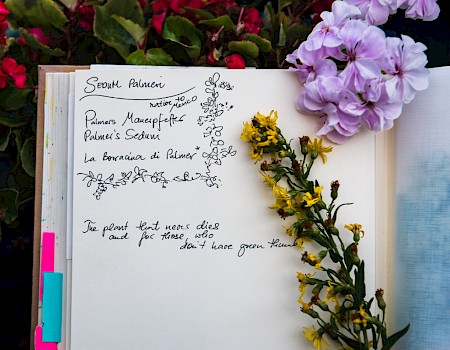 Sedum Palmeri
native to Mexico
Palmers Mauerpfeffer
Palmer's Sedum
La Borracina di Palmer*
The plant that never dies
and for those, who
don't have green thumb